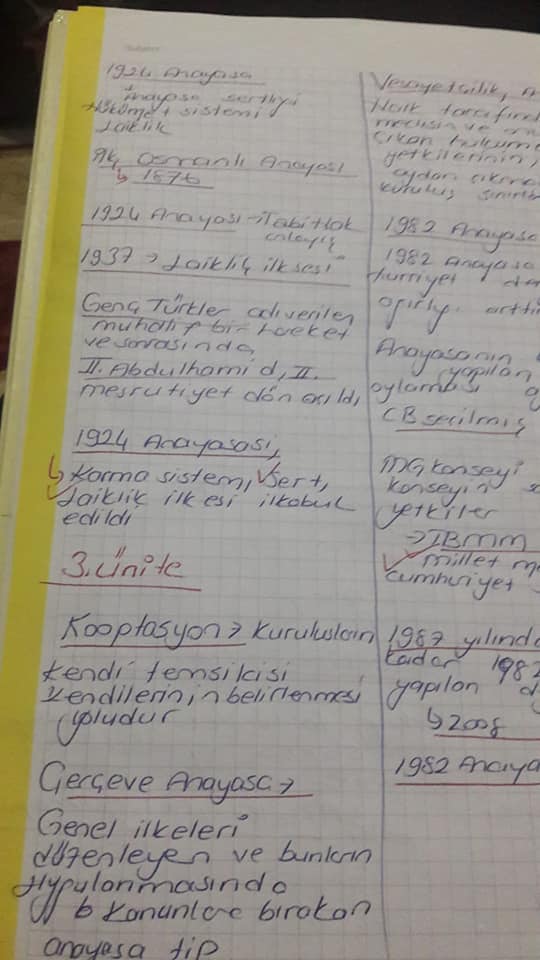 1924 Anayasa
Anayasa sertliği
Hükümet sistemi
Laiklik
ilk Osmanlı Anayası
↳ 1876
1924 Anayası →
1937 → Laiklik ilkesi
Genç Türkler adı verilen
muhalif bir hareket
ve sonrasında,
II. Abdulhamid, II.
meşrutiyet dön açıldı,
1924 Anayasası,
↳ Karma sistem, sert,
Laiklik ilkesi ilkabul
edildi
3. Ünite
Kooptasyon → Kuruluşların
kendi temsilcisi
kendilerinin belirlenmesi
yoludur
Çerçeve Anayasa →
Genel ilkeleri
düzenleyen ve bunların
uygulanmasında
kanunlara bırakan
anayasa tip
Vesayetçilik,
Halk tarafınd
meclisin ve
çıkan hüküm
yetkilerinin,
kuruluş
1982 Anayasa
1982 Anayasa
Hürriyet
arttı
Anayasanın
yapılan
oylaması
CB seçilmiş
MG konseyi
konseyin
yetkiler
→ TBMM
millet m
cumhuriyet
1987 yılında
kadar 1982
yapılan d
↳ 2008
1982 Anaya